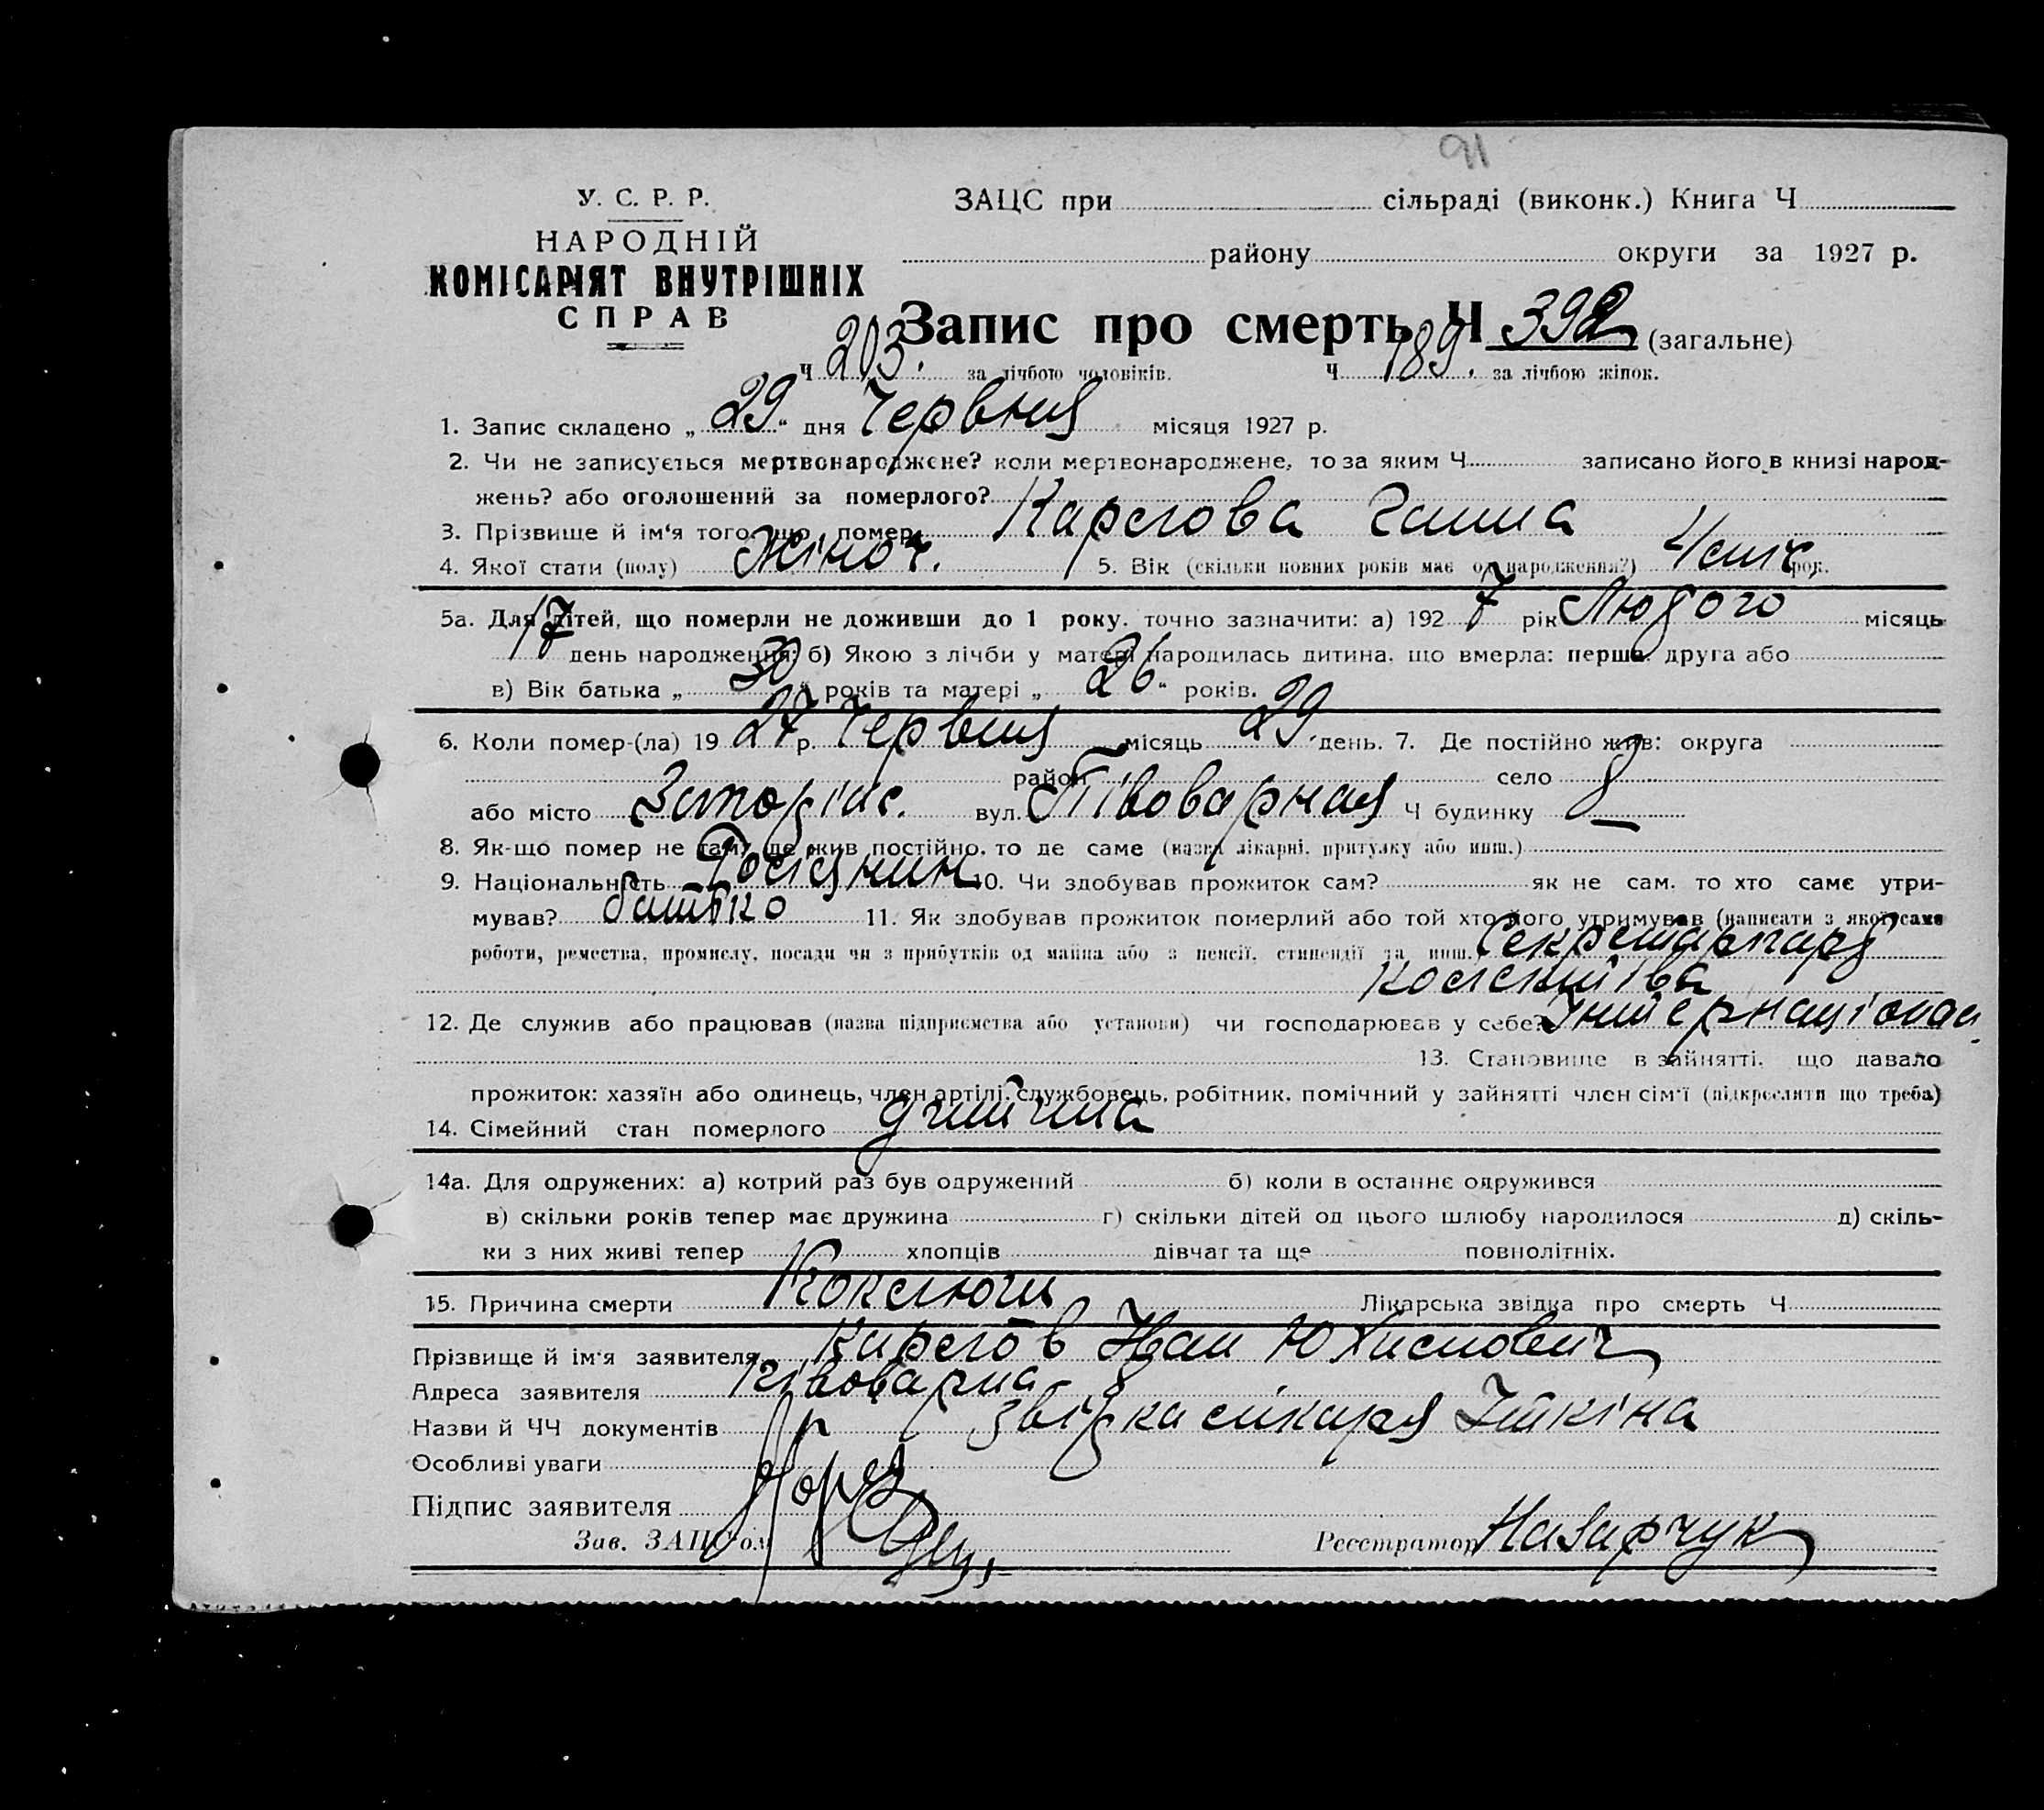 91
У. С. Р. Р.
НАРОДНІЙ
КОМІСАРІЯТ ВНУТРІШНІХ
СПРАВ
ЗАЦС при сільраді (виконк.) Книга Ч
району округи за 1927 р.
Запис про смерть Ч 392 (загальне)
Ч 203. за лічбою чоловіків. Ч 189. за лічбою жінок.
1. Запис складено „29“ дня Червня місяця 1927 р.
2. Чи не записується мертвонароджене? коли мертвонароджене, то за яким Ч записано його в книзі народ-
жень? або оголошений за померлого?
3. Прізвище й ім'я того, що помер Карлова Ганна
4. Якої стати (полу) Жіноч. 5. Вік (скільки повних років має од народження?) 4 рок.
5а. Для дітей, що померли не доживши до 1 року, точно зазначити: а) 1927 рік Лютого місяць
17 день народження; б) Якою з лічби у матері народилась дитина, що вмерла: перша, друга або
в) Вік батька „30“ років та матері „26“ років.
6. Коли помер-(ла) 1927 р. Червня місяць 29 день. 7. Де постійно жив: округа
район село
або місто вул. Півоварная Ч будинку 8
8. Як-що помер не там, де жив постійно, то де саме (назва лікарні, притулку або инш.)
9. Національність Росіянин 10. Чи здобував прожиток сам? як не сам, то хто саме утри-
мував? батько 11. Як здобував прожиток померлий або той хто його утримував (написати з якої саме
роботи, ремества, промислу, посади чи з прибутків од майна або з пенсії, стипендії та инш.) Секретарпар
колектива
12. Де служив або працював (назва підприємства або установи) чи господарював у себе? Інтернаціонал
13. Становище в зайнятті, що давало
прожиток: хазяїн або одинець, член артілі, службовець, робітник, помічний у зайнятті член сім'ї (підкреслити що треба)
14. Сімейний стан померлого дитина
14а. Для одружених: а) котрий раз був одружений б) коли в останнє одружився
в) скільки років тепер має дружина г) скільки дітей од цього шлюбу народилося д) скіль-
ки з них живі тепер хлопців дівчат та ще повнолітніх.
15. Причина смерти Коклюш Лікарська звідка про смерть Ч
Прізвище й ім'я заявителя Карлов Іван Юхимович
Адреса заявителя Півоварна
Назви й ЧЧ документів звідка лікаря Іткіна
Особливі уваги
Підпис заявителя
Зав. ЗАЦС'ом Реєстратор Назарчук